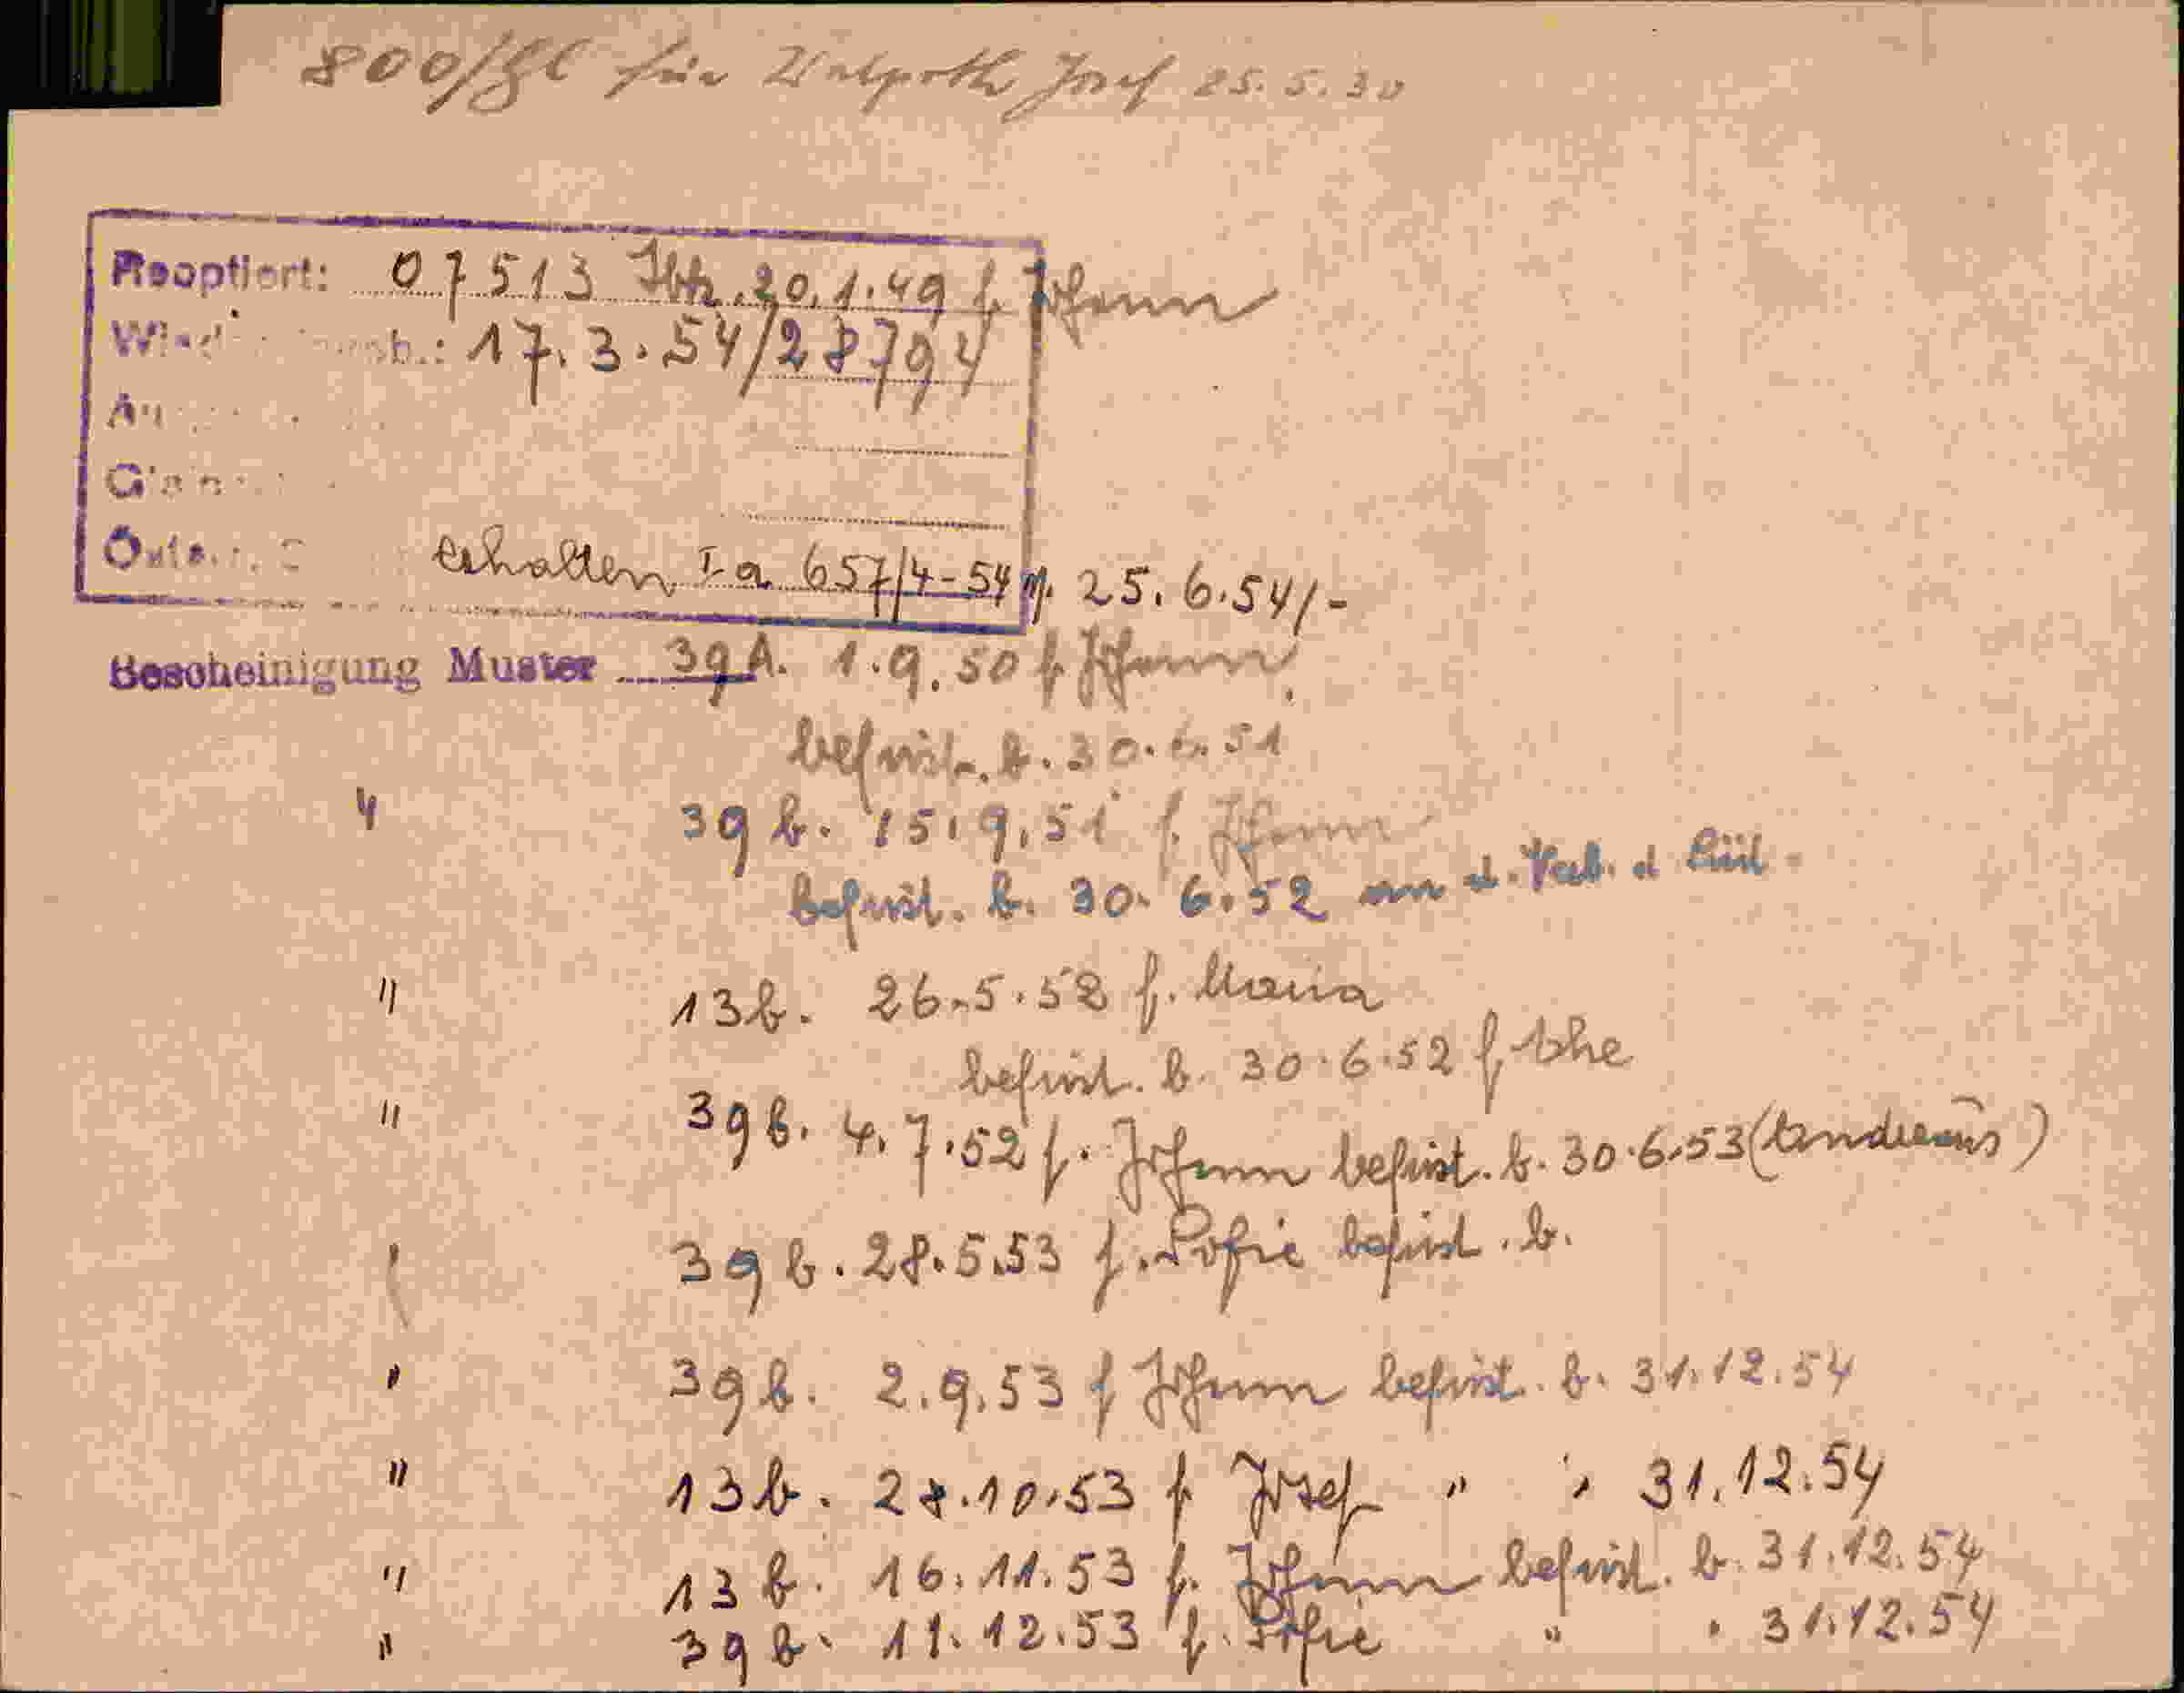 800/gl für Walpoth Josef 25.5.30
Reoptiert: 07513 Ibk. 20.1.49 f. Johann
17.3.54/28794
erhalten I a 657/4-54 25.6.54/-
Bescheinigung Muster 39 A. 1.9.50 f Johann
befrist. b. 30.6.51
4 39 b. 15.9.51 f. Johann
befrist. b. 30.6.52
" 13 b. 26.5.52 f. Maria
befrist. b. 30.6.52 f.
" 39 b. 4.7.52 f. Johann befrist. b. 30.6.53
39 b. 28.5.53 f. Sofie befrist. b.
" 39 b. 2.9.53 f Johann befrist. b. 31.12.54
" 13 b. 28.10.53 f Josef " " 31.12.54
" 13 b. 16.11.53 f. Johann befrist. b. 31.12.54
" 39 b. 11.12.53 f. Sofie " " 31.12.54